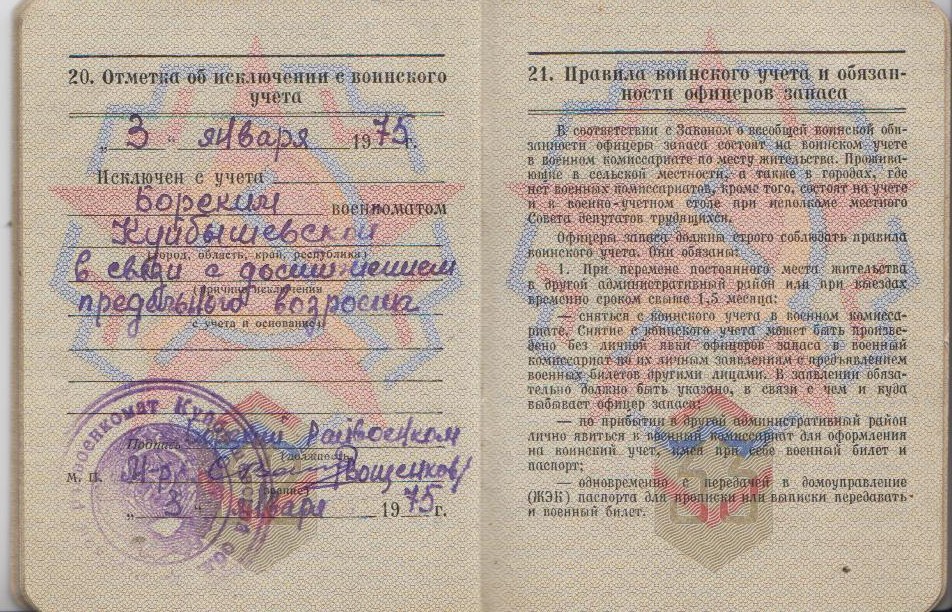 20. Отметка об исключении с воинского
учета
„ 3 “ января 1975г.
Исключен с учета
Борским военкоматом
Куйбышевской
(город, область, край, республика)
в связи с достижением
(причина исключения
предельного возраста
с учета и основание)
Военкомат Куйб
Подпись Борский Райвоенком
(должность,
М. П. М-р
звание)
„ 3 “ января 1975 г.
21. Правила воинского учета и обязан-
ности офицеров запаса
В соответствии с Законом о всеобщей воинской обя-
занности офицеры запаса состоят на воинском учете
в военном комиссариате по месту жительства. Прожива-
ющие в сельской местности, а также в городах, где
нет военных комиссариатов, кроме того, состоят на учете
и в военно-учетном столе при исполкоме местного
Совета депутатов трудящихся.
Офицеры запаса должны строго соблюдать правила
воинского учета. Они обязаны:
1. При перемене постоянного места жительства
в другой административный район или при выездах
временно сроком свыше 1,5 месяца:
— сняться с воинского учета в военном комисса-
риате. Снятие с воинского учета может быть произве-
дено без личной явки офицеров запаса в военный
комиссариат по их личным заявлениям с предъявлением
военных билетов другими лицами. В заявлении обяза-
тельно должно быть указано, в связи с чем и куда
выбывает офицер запаса;
— по прибытии в другой административный район
лично явиться в военный комиссариат для оформления
на воинский учет, имея при себе военный билет и
паспорт;
— одновременно с передачей в домоуправление
(ЖЭК) паспорта для прописки или выписки передавать
и военный билет.